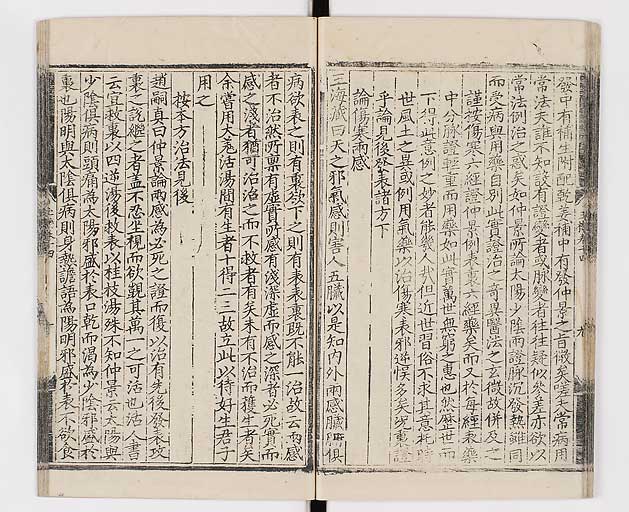 發中有補生附配乾姜補中有發仲景之言微矣嗟夫常病用
常法夫誰不知設有證變者或脉變者往往疑似參差亦欲以
常法例治之惑矣如仲景所論太陽少陰兩證脉沉發熱雖同
而受病與用藥自別此實證治之奇異醫法之玄微故併及之
謹按傷寒六經證仲景例表裏六經藥矣而又於每經表藥
中分脉證輕重而用藥如此實萬世無窮之惠也然歷世而
下得此意例之妙者能幾人哉但近世習俗不求其意托時
世風土之異或例用氣藥以治傷寒表邪遂悮多矣况裏證
乎論見後發表諸方下
論傷寒兩感
王海藏曰天之邪氣感則害人五臟以是知内外兩感臟腑俱
病欲表之則有裏欲下之則有表表裏既不能一治故云兩感
者不治然所稟有虛實所感有淺深虛而感之深者必死實而
感之淺者猶可治治之而不救者有矣未有不治而獲生者矣
余嘗用大羗活湯間有生者十得二三故立此以待好生君子
用之
按本方治法見後
趙嗣真曰仲景論兩感為必死之證而復以治有先後發表攻
裏之說繼之者盖不忍坐視而欲覬其萬一之可活也活人書
云宜救裏以四逆湯後救表以桂枝湯殊不知仲景云太陽與
少陰俱病則頭痛為太陽邪盛於表口乾而渴為少陰邪盛於
裏也陽明與太陰俱病則身熱譫語為陽明邪盛於表不欲食